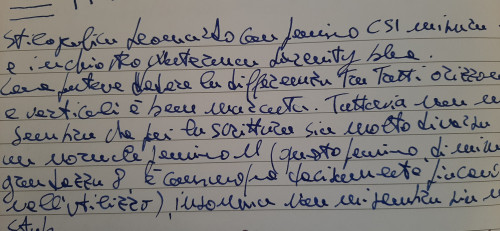 Stilografica Leonardo con pennino CSI
e inchiostro Waterman Serenity blue.
Come potete vedere la differenza tra tratti orizzon
e verticali è ben marcata. Tuttavia non m
sembra che per la scrittura sia molto diverso
un normale pennino M (questo pennino di
grandezza 8, è comunque decisamente
nell'utilizzo), insomma non mi sembra sia u
stub